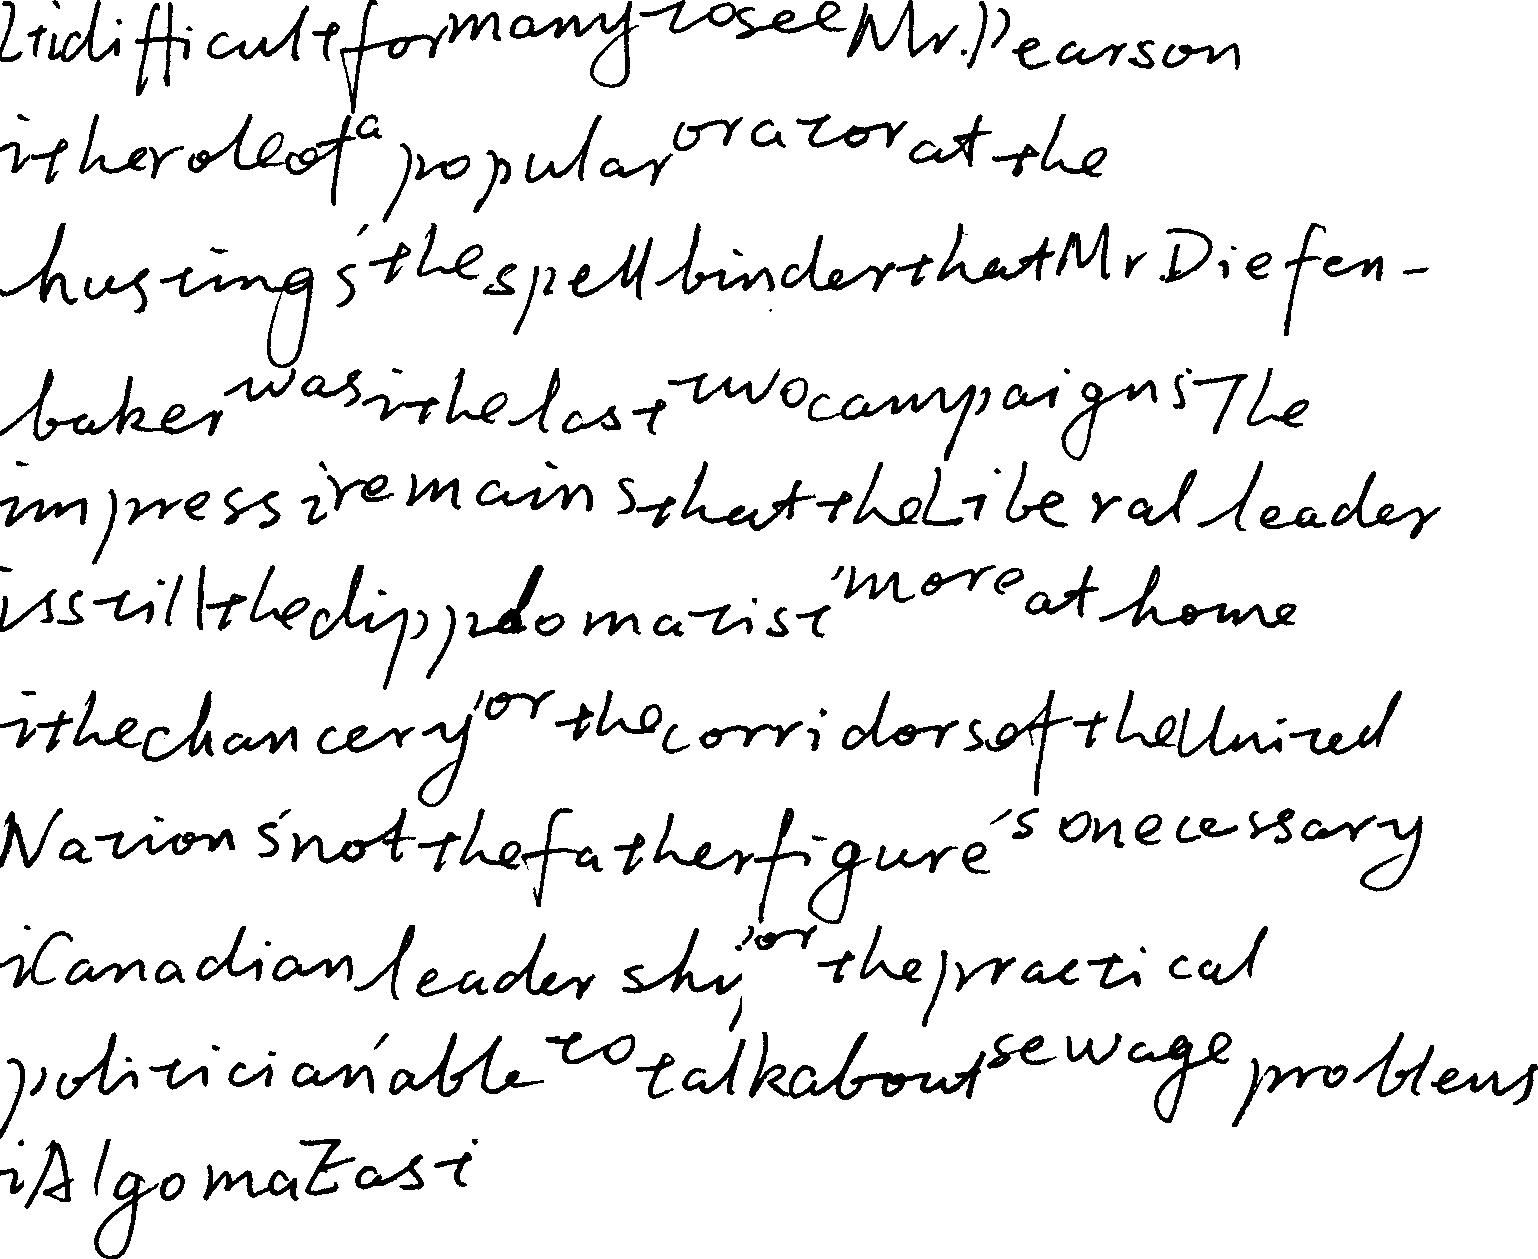 It i difficult for many to see Mr. Pearson
i the role of a popular orator at the
hustings' the spellbinder that Mr Diefen-
baker was i the last two campaigns' The
impressi remains that the Liberal leader
is still the dipplomatist' more at home
i the chancery' or the corridors of the United
Nations' not the father figure' so necessary
i Canadian leadership' or the practical
politician' able to talk about sewage problems
i Algoma East